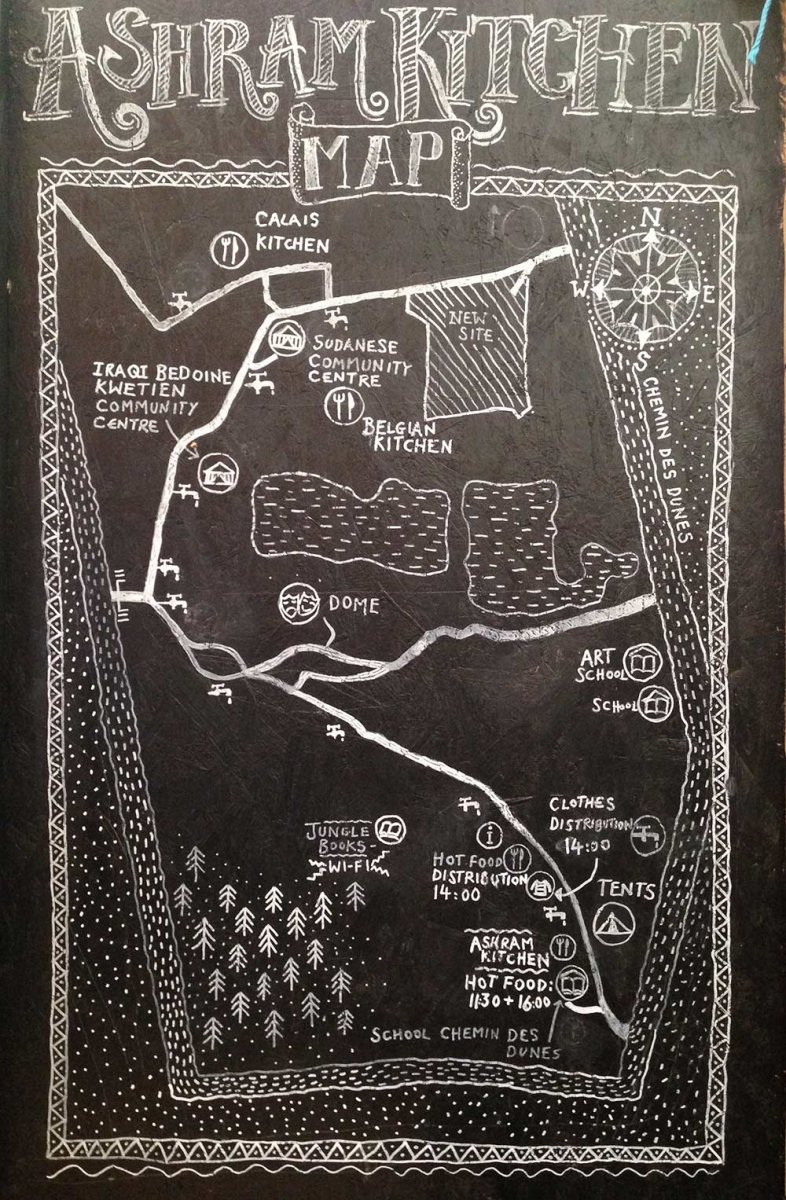 ASHRAM KITCHEN
MAP
CALAIS
KITCHEN
N
W
E
S
NEW
SITE
SUDANESE
COMMUNITY
CENTRE
IRAQI BEDOINE
KWETIEN
COMMUNITY
CENTRE
BELGIAN
KITCHEN
CHEMIN DES DUNES
DOME
ART
SCHOOL
SCHOOL
CLOTHES
DISTRIBUTION
14:00
JUNGLE
BOOKS-
WI-FI
i
HOT FOOD
DISTRIBUTION
14:00
TENTS
ASHRAM
KITCHEN
HOT FOOD:
11:30 + 16:00
SCHOOL CHEMIN DES
DUNES